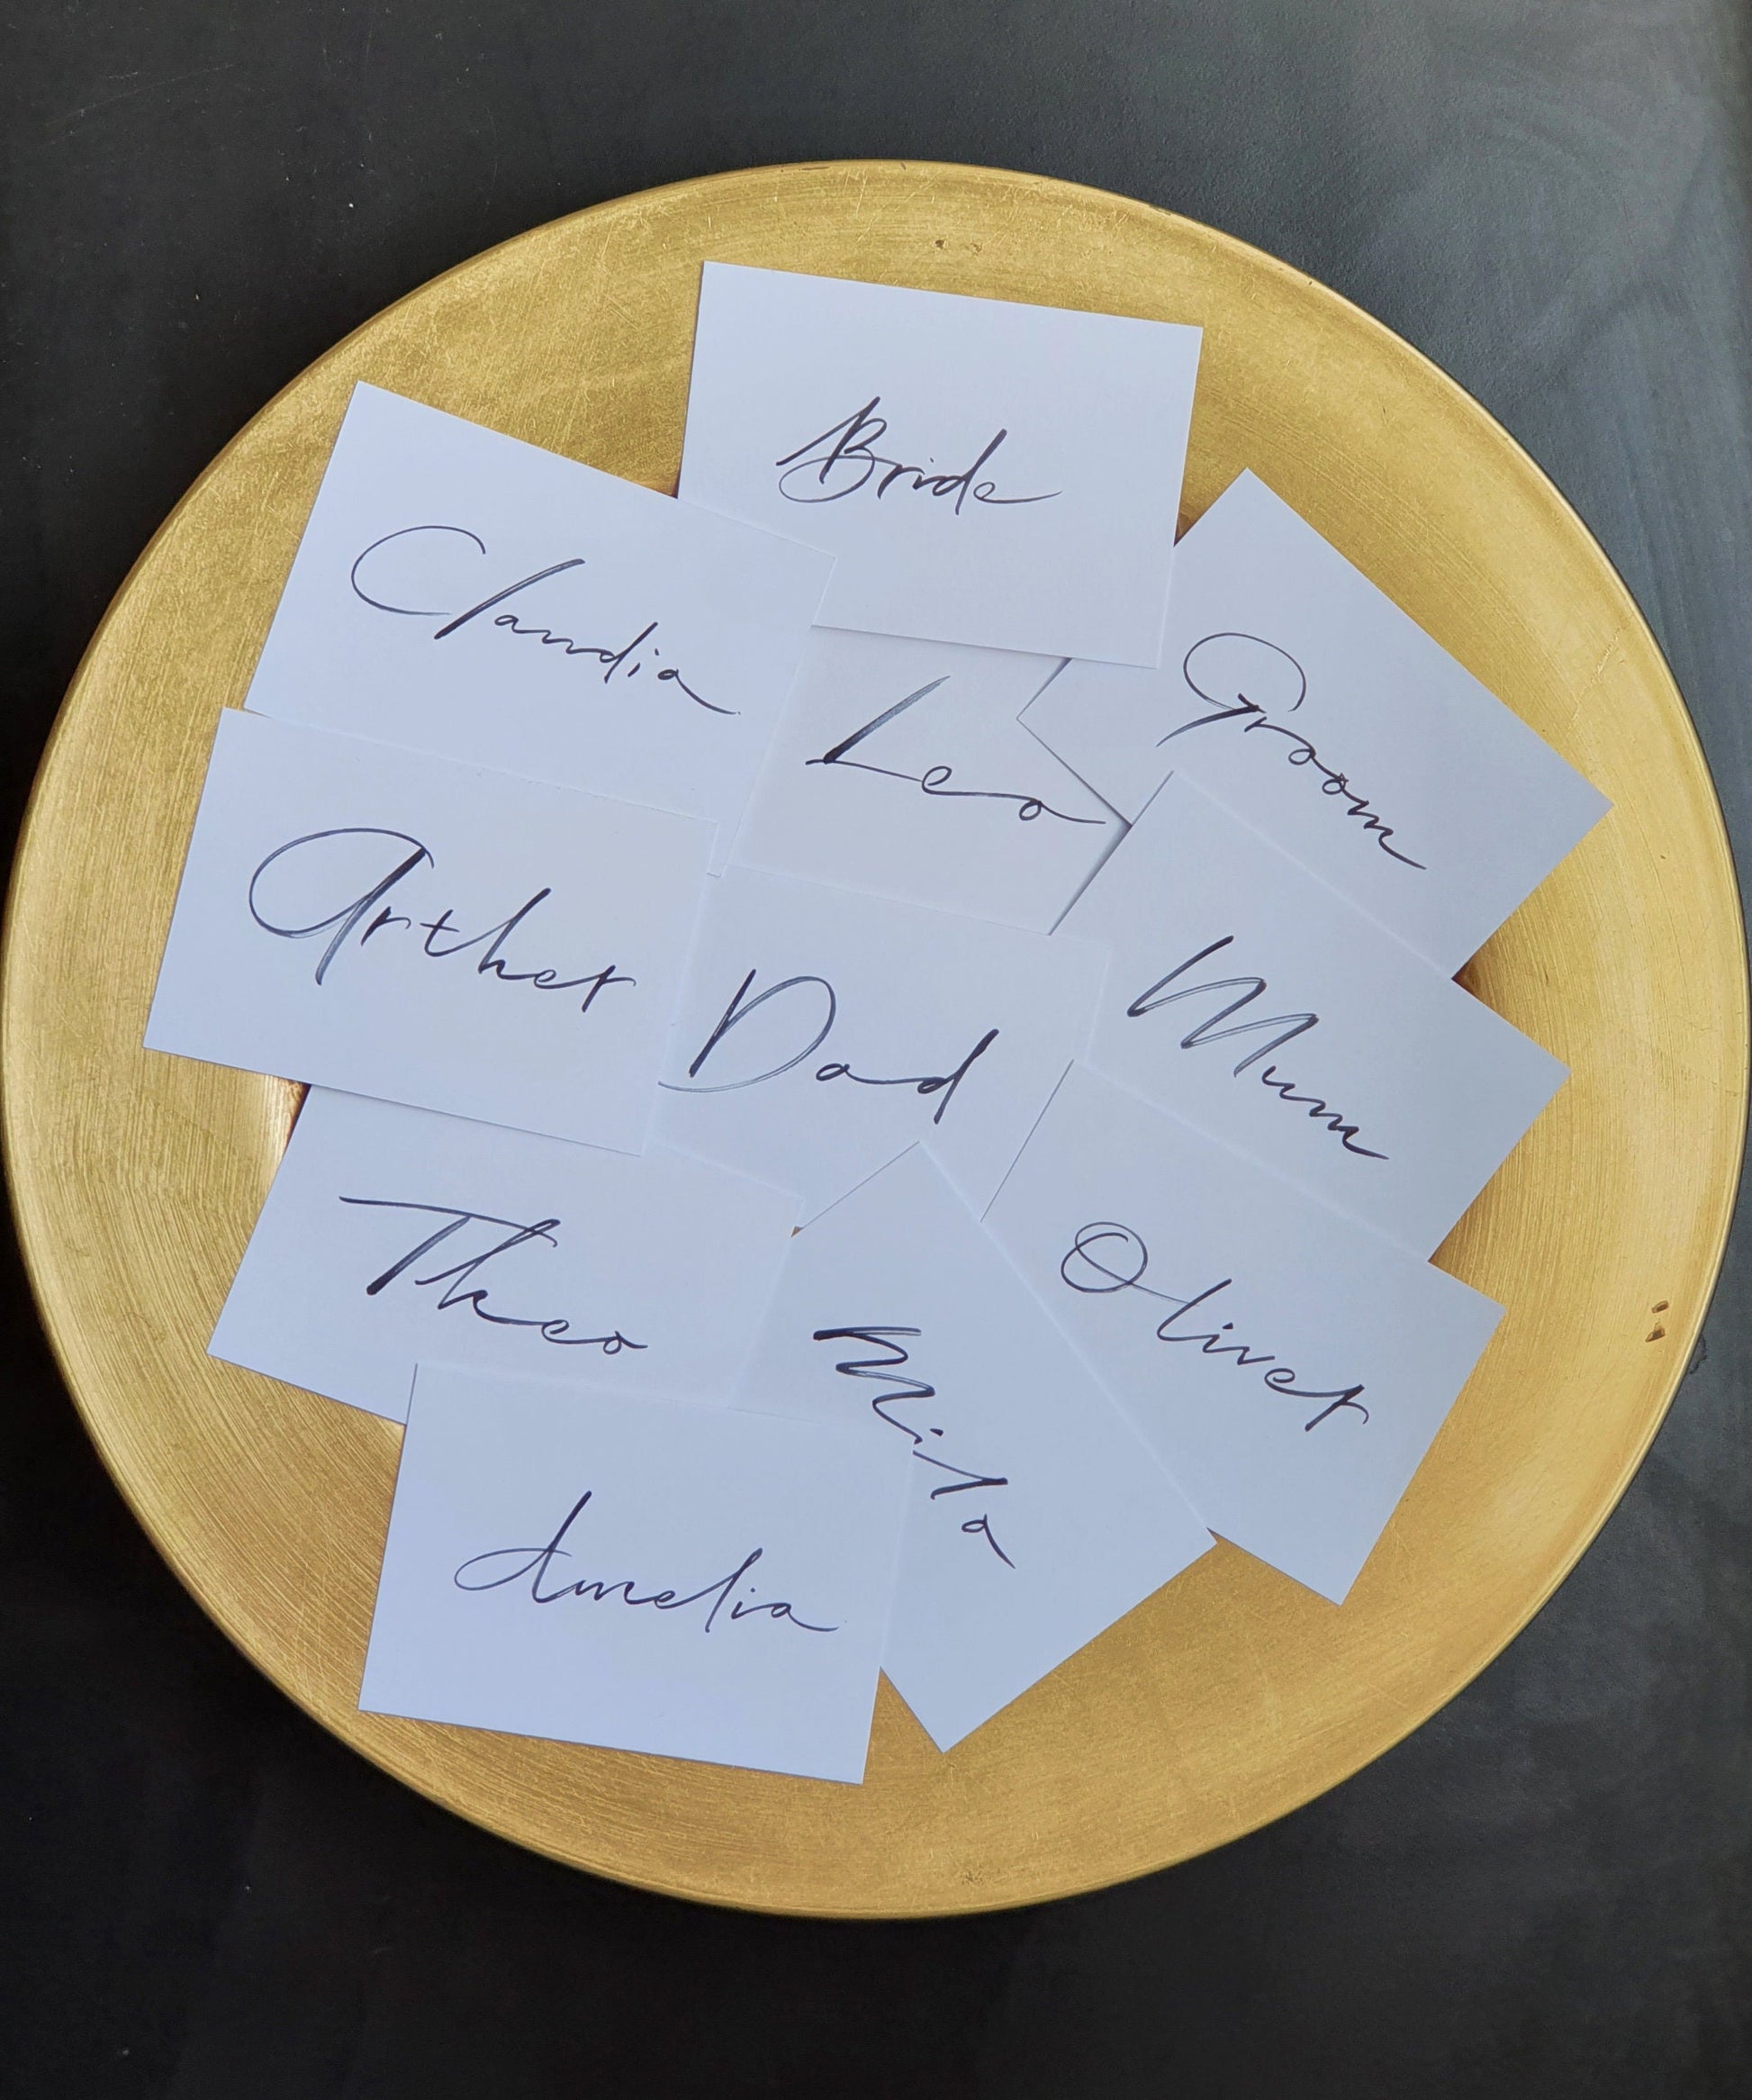 Bride
Claudia
Groom
Leo
Arther
Dad
Mum
Theo
Oliver
Mila
Amelia